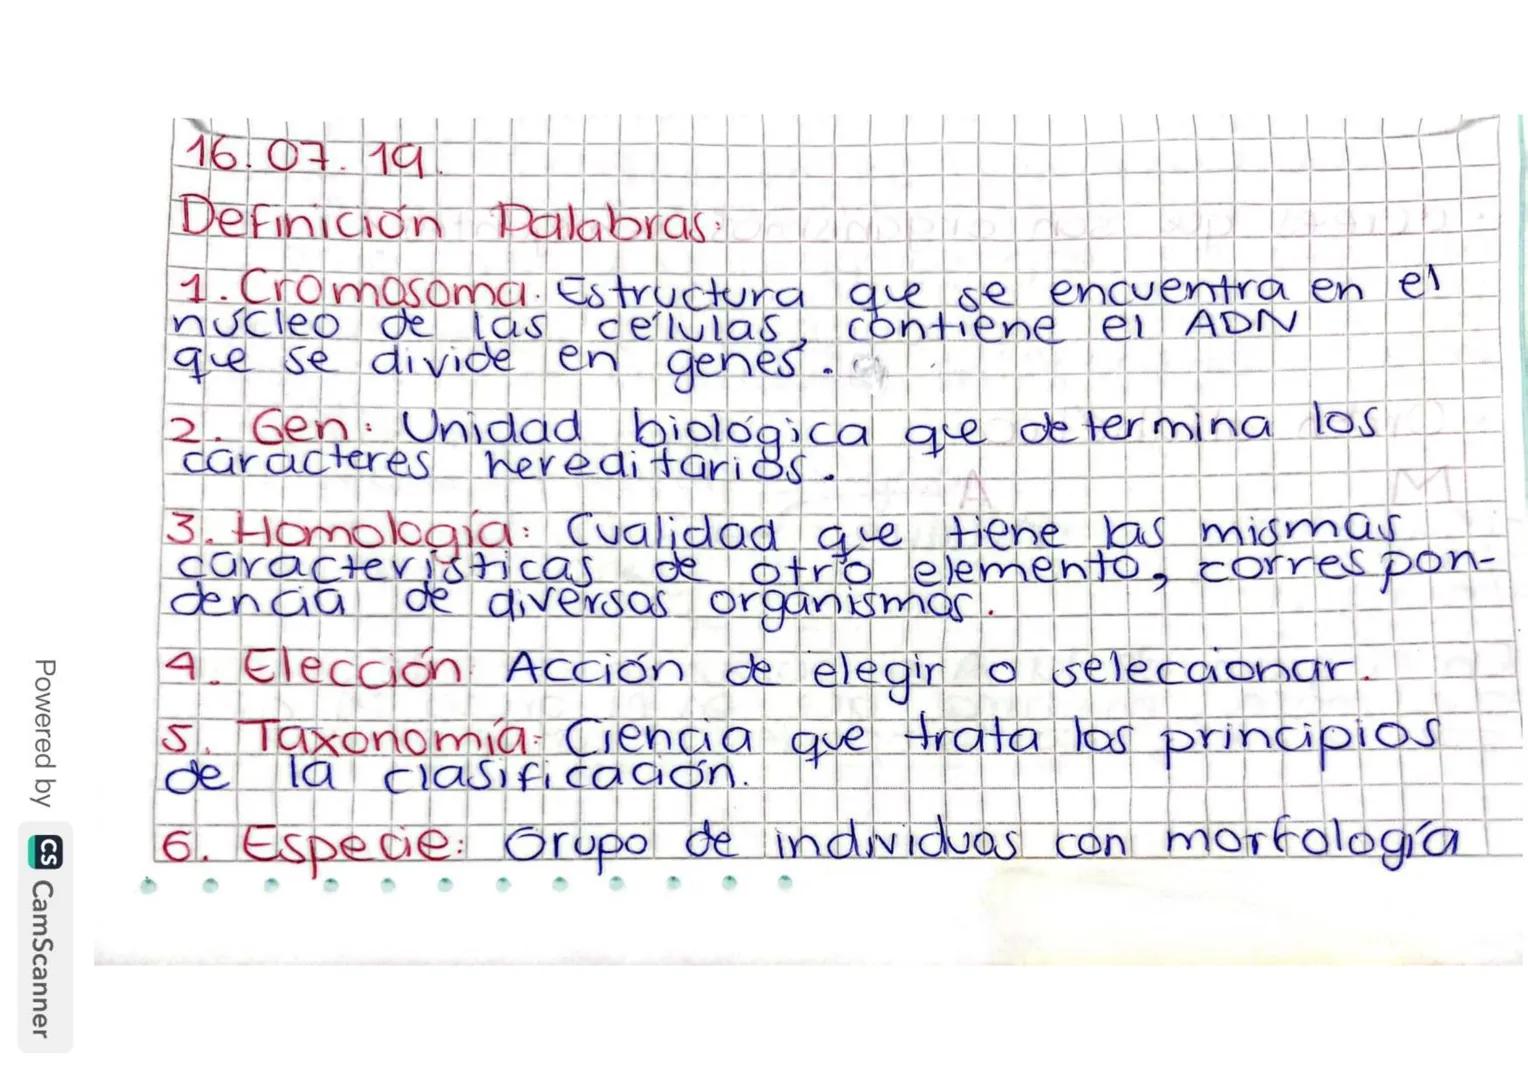 16.07.19.
Definición Palabras:
1. Cromosoma. Estructura que se encuentra en el
núcleo de las células, contiene el ADN
que se divide en genes.
2. Gen: Unidad biológica que determina los
caracteres hereditarios.
3. Homología: Cualidad que tiene las mismas
características de otro elemento, correspon-
dencia de diversos organismos.
4. Elección: Acción de elegir o seleccionar.
5. Taxonomía: Ciencia que trata los principios
de la clasificación.
6. Especie: Grupo de individuos con morfología
Powered by CS CamScanner